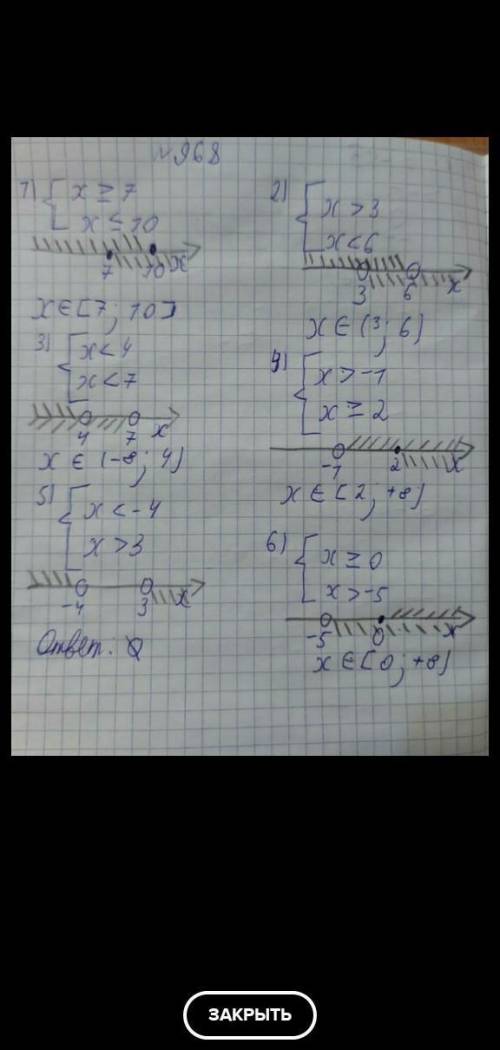 №968
1) { x ≥ 7
x ≤ 10
7 10 x
x ∈ [7; 10]
2) { x > 3
x < 6
3 6 x
x ∈ (3; 6)
3) { x < 4
x < 7
4 7 x
x ∈ (-8; 4)
4) { x > -1
x ≥ 2
-1 2 x
x ∈ [2; +8)
5) { x < -4
x > 3
-4 3 x
Ответ: Ø
6) { x ≥ 0
x > -5
-5 0 x
x ∈ [0; +8)
ЗАКРЫТЬ